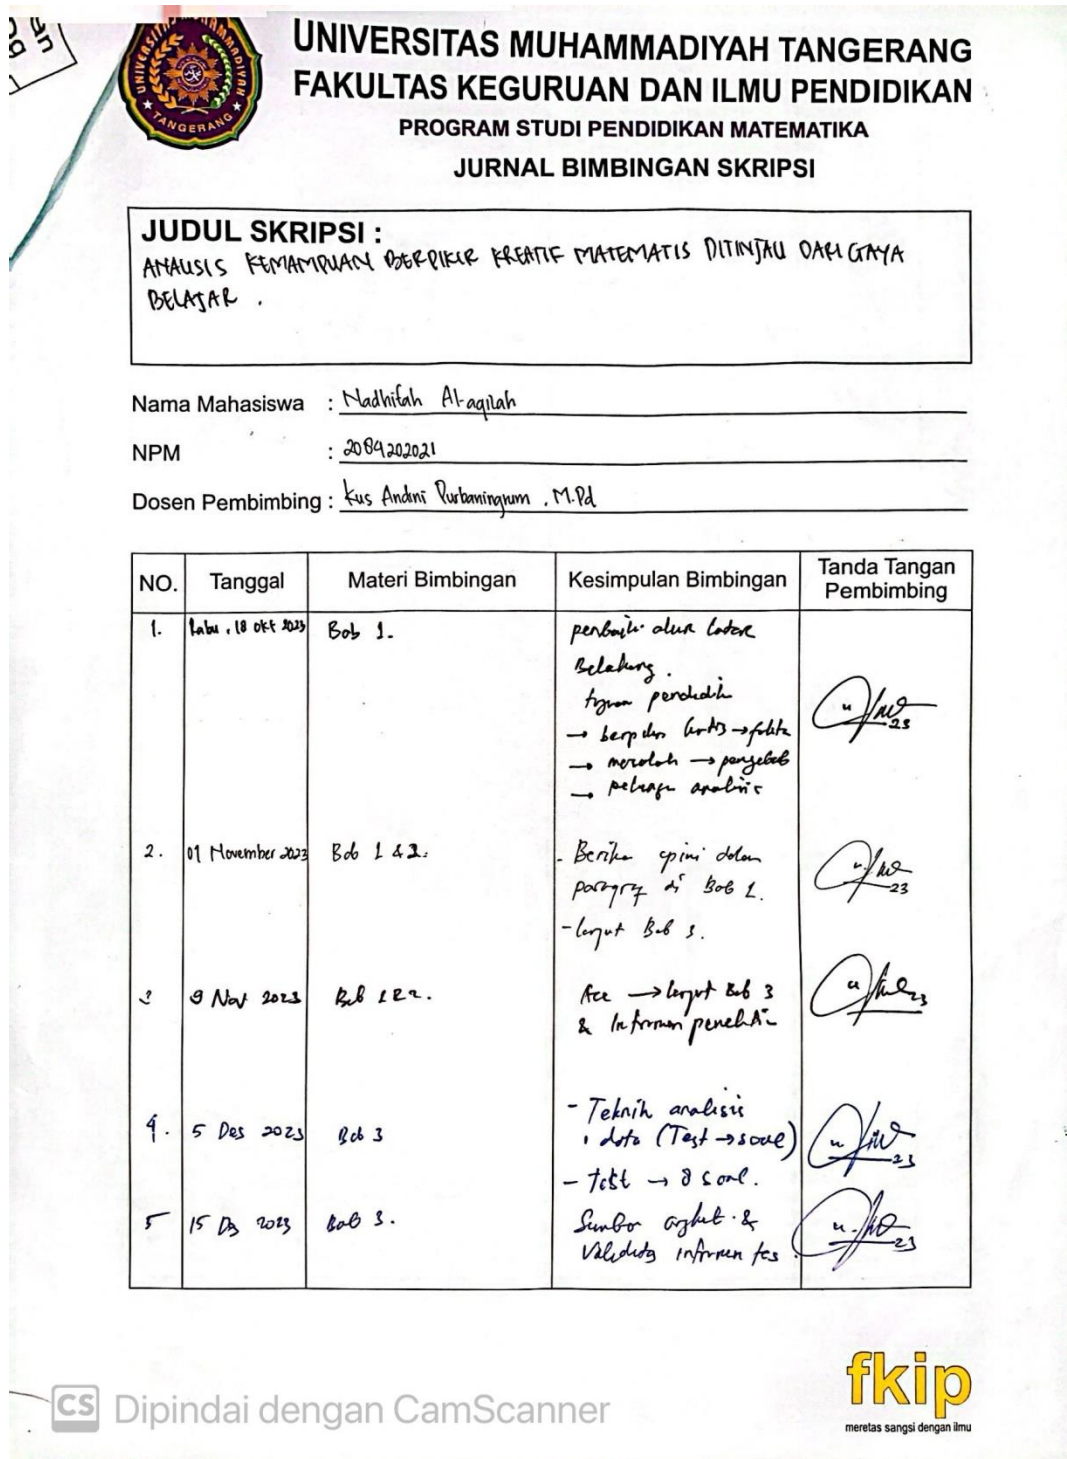 UNIVERSITAS MUHAMMADIYAH TANGERANG
FAKULTAS KEGURUAN DAN ILMU PENDIDIKAN
PROGRAM STUDI PENDIDIKAN MATEMATIKA
JURNAL BIMBINGAN SKRIPSI
UNIVERSITAS MUHAMMADIYAH
TANGERANG
JUDUL SKRIPSI :
ANALISIS KEMAMPUAN BERPIKIR KREATIF MATEMATIS DITINJAU DARI GAYA
BELAJAR .
Nama Mahasiswa : Nadhifah Al-aqilah
NPM : 2084202021
Dosen Pembimbing : Kus Andini Purbaningrum , M.Pd
NO. Tanggal Materi Bimbingan Kesimpulan Bimbingan Tanda Tangan Pembimbing
1. Rabu , 18 Okt 2023 Bab 1. perbaiki alur latar
Belakang .
→
→
→ analisis
23
2. 01 November 2023 Bab 1 & 2. - opini dalam
di Bab 1.
- lanjut Bab 3.
23
3 9 Nov 2023 Bab 1 & 2. Acc → lanjut Bab 3
&
23
4. 5 Des 2023 Bab 3 - Teknik analisis
data (Test → soal)
- test → 8 soal.
23
5 15 Des 2023 Bab 3. Sumber angket &
tes
23
CS Dipindai dengan CamScanner
fkip
meretas sangsi dengan ilmu